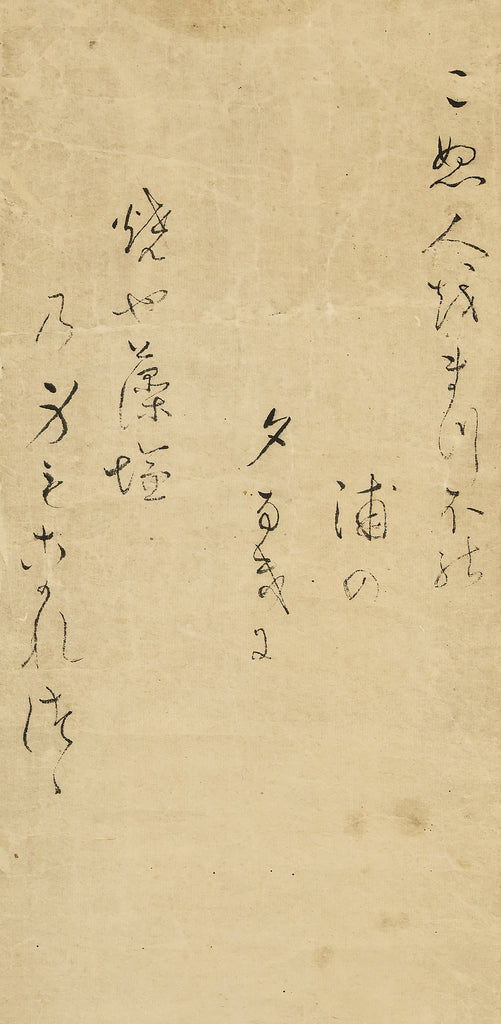 こぬ人越まつ不能
浦の
夕なきに
焼や藻塩
乃身もこかれつゝ